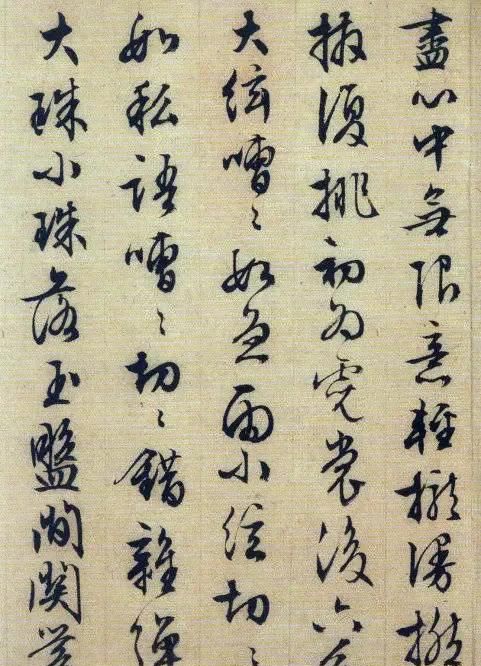 盡心中無限意輕攏漫撚
撥復挑初為霓裳後六
大弦嘈〻如急雨小弦切〻
如私語嘈〻切〻錯雜彈
大珠小珠落玉盤間關鶯